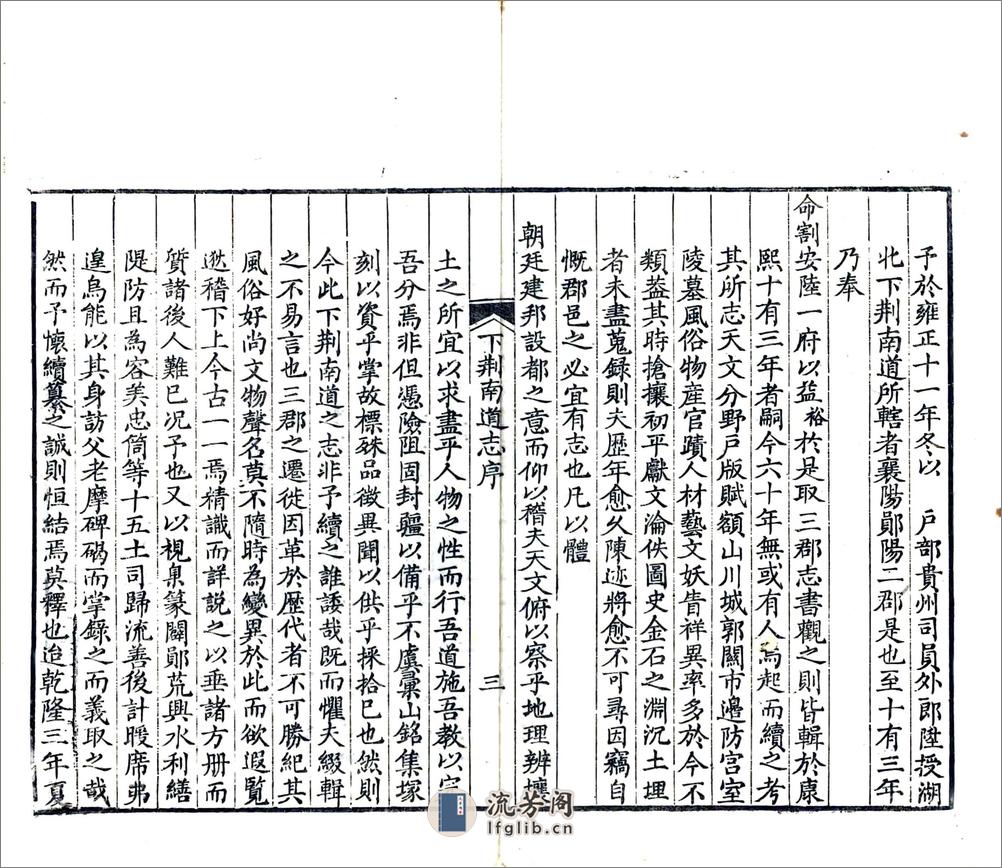 予於雍正十一年冬以 戶部貴州司員外郎陞授湖
北下荆南道所轄者襄陽鄖陽二郡是也至十有三年
乃奉
命割安陸一府以益裕於是取三郡志書觀之則皆輯於康
熙十有三年者嗣今六十年無或有人焉起而續之考
其所志天文分野戶版賦額山川城郭關市邊防宮室
陵墓風俗物産官蹟人材藝文妖眚祥異率多於今不
類葢其時搶攘初平獻文淪佚圖史金石之淵沉土埋
者未盡蒐録則夫歷年愈久陳迹將愈不可尋因竊自
慨郡邑之必宜有志也凡以體
朝廷建邦設都之意而仰以稽夫天文俯以察乎地理辨壤
下荆南道志序 三
土之所宜以求盡乎人物之性而行吾道施吾教以定
吾分焉非但憑險阻固封疆以備乎不虞彙山銘集塚
刻以資乎掌故標殊品徵異聞以供乎採拾已也然則
今此下荆南道之志非予續之誰諉哉既而懼夫綴輯
之不易言也三郡之遷徙因革於歷代者不可勝紀其
風俗好尚文物聲名莫不隨時為變異於此而欲遐覽
逖稽下上今古一一焉精識而詳說之以垂諸方册而
質諸後人難已况予也又以視臬篆闢鄖荒興水利繕
隄防且為容美忠侗等十五土司歸流善後計暖席弗
遑烏能以其身訪父老摩碑碣而掌録之而義取之哉
然而予懷續纂之誠則恒結焉莫釋也迨乾隆三年夏
流芳阁
lfglib.cn